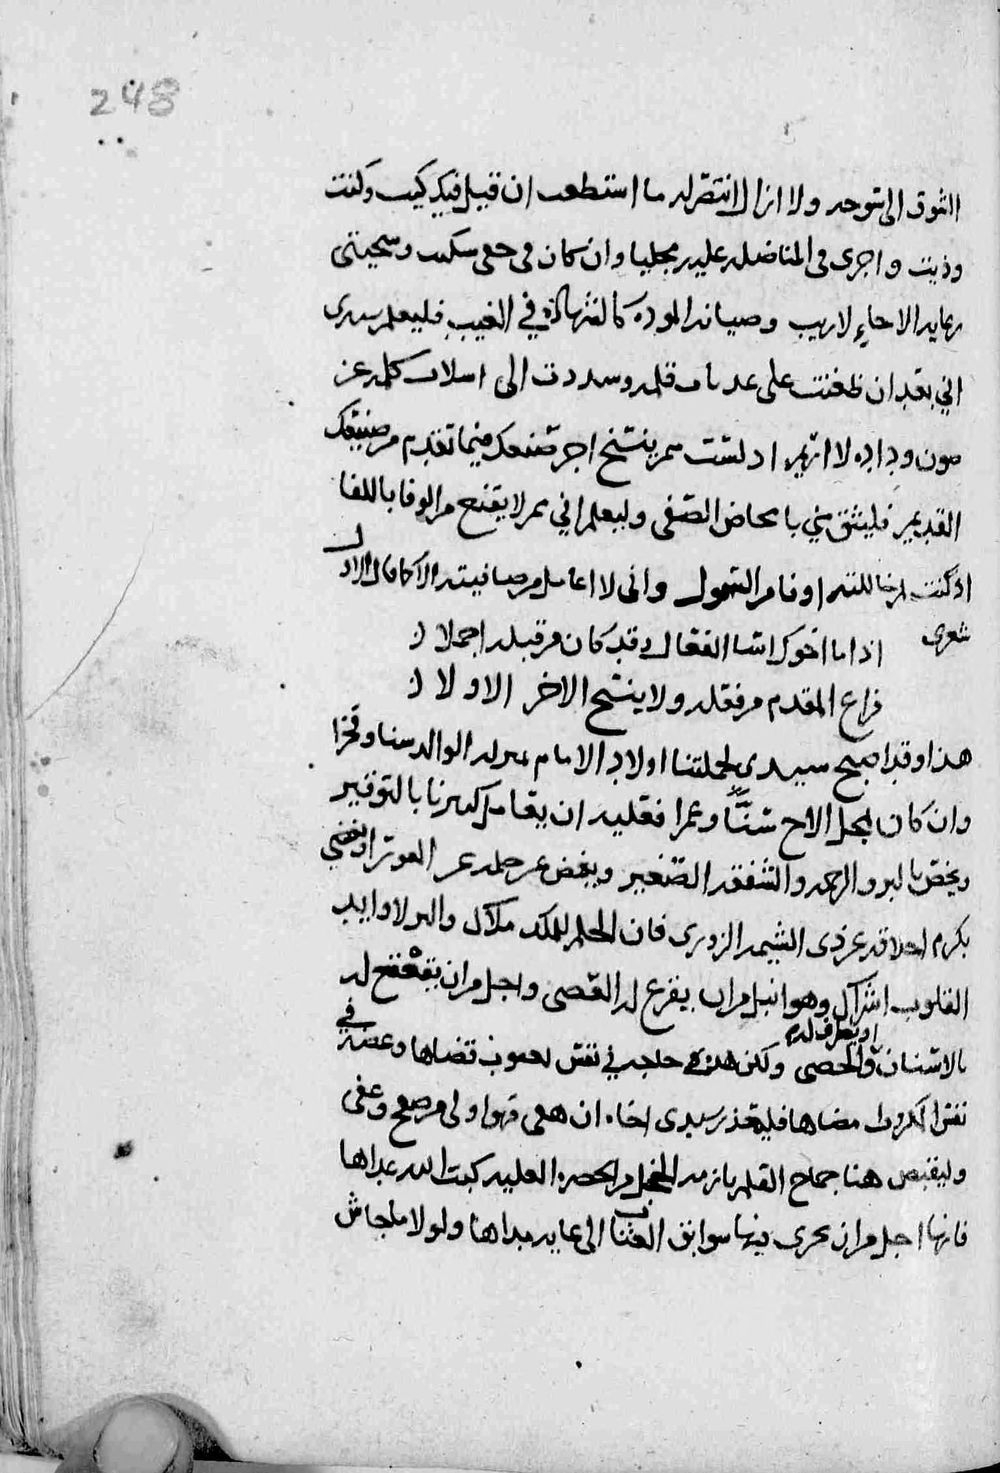 248
الشوق الى توحد ولا ازال انتصر له ما استطعت ان قيل فيك كيت وكنت
وذيت واجرى في المناضله عليه مجليا وان كان في حقي سكيت وسجيتي
رعاية الاخاء لاريب وصيانه الموده كالشهادة في الغيب فليعلم سيدي
اني بعد ان ظفنت على قلمه وسددت الى اسلات كلمه عن
صون وداده لا اتهم اد لست ممن ينسخ اجر صنعك فيما تقدم من صنيعك
القديم فليثق مني بامحاض الصفى وليعلم اني ممن لا يقنع من الوفا باللفا
اذ كنت اوفا من السمول واني لا اعامل من صافيته الا كما قال الاول
شعرى اذا ما اخوك اسا الفعال وقد كان من قبله اجملا
فراع المقدم من فعله ولا ينسخ الاخر الاولا
هذا وقد اصبح سيدي لجملتنا اولاد الامام بمنزلة الوالد سنا وفخرا
وان كان لجل الاخ سنا وعمرا فعليه ان يعامل كبيرنا بالتوقير
ويخص بالبر والرحمه والشفقه الصغير ويغض عن حلمه عن العوثر او يغضي
بكرم اخلاقه عن ذى الشيمه الزورى فان الحلم للملك ملاك والبر لاوابد
القلوب اشراك وهو انبل من ان يقرع له العصى واجل من ان يقعقع له
او يطرف له
بالاشنان والحصى ولكن هذه حاجه في نفس يعقوب قضاها وعصه في
نفس مضاها فليعذر سيدي اخاه ان هفى فهو اولى من صفح وعفى
وليقبض هنا جماح القلم بازمه الخجل من الحضره العليه كبت الله عداها
فانها اجل من ان يجرى فيها سوابق العتاب الى غايه مداها ولولا ما جاش